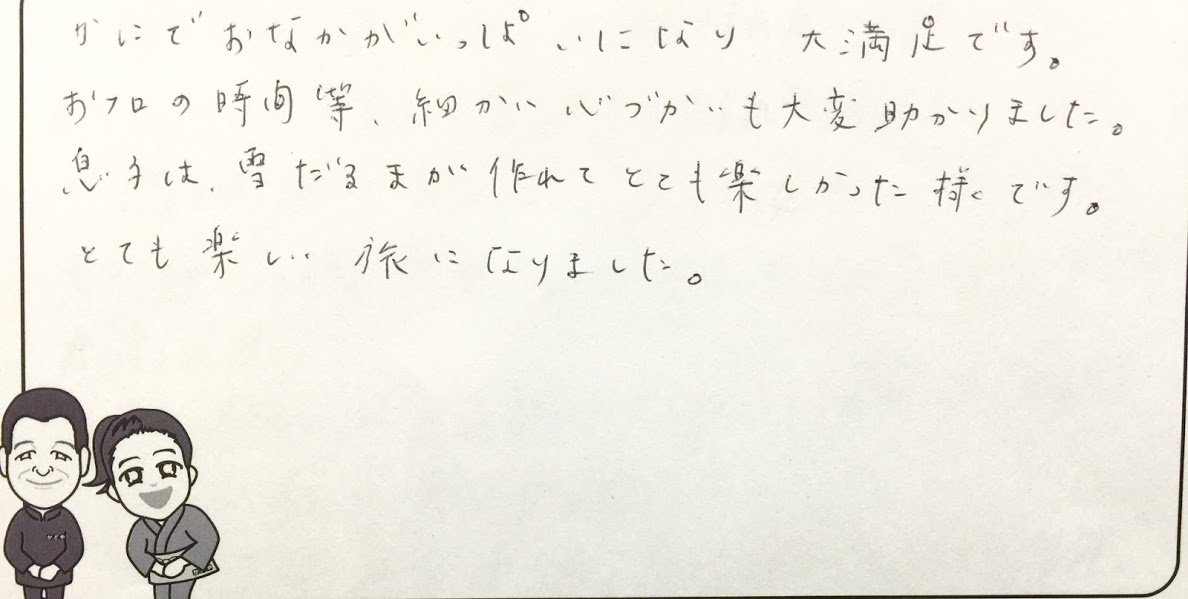 かにでおなかがいっぱいになり 大満足です。
おフロの時間等、細かい心づかいも大変助かりました。
息子は、雪だるまが作れてとても楽しかった様です。
とても楽しい旅になりました。